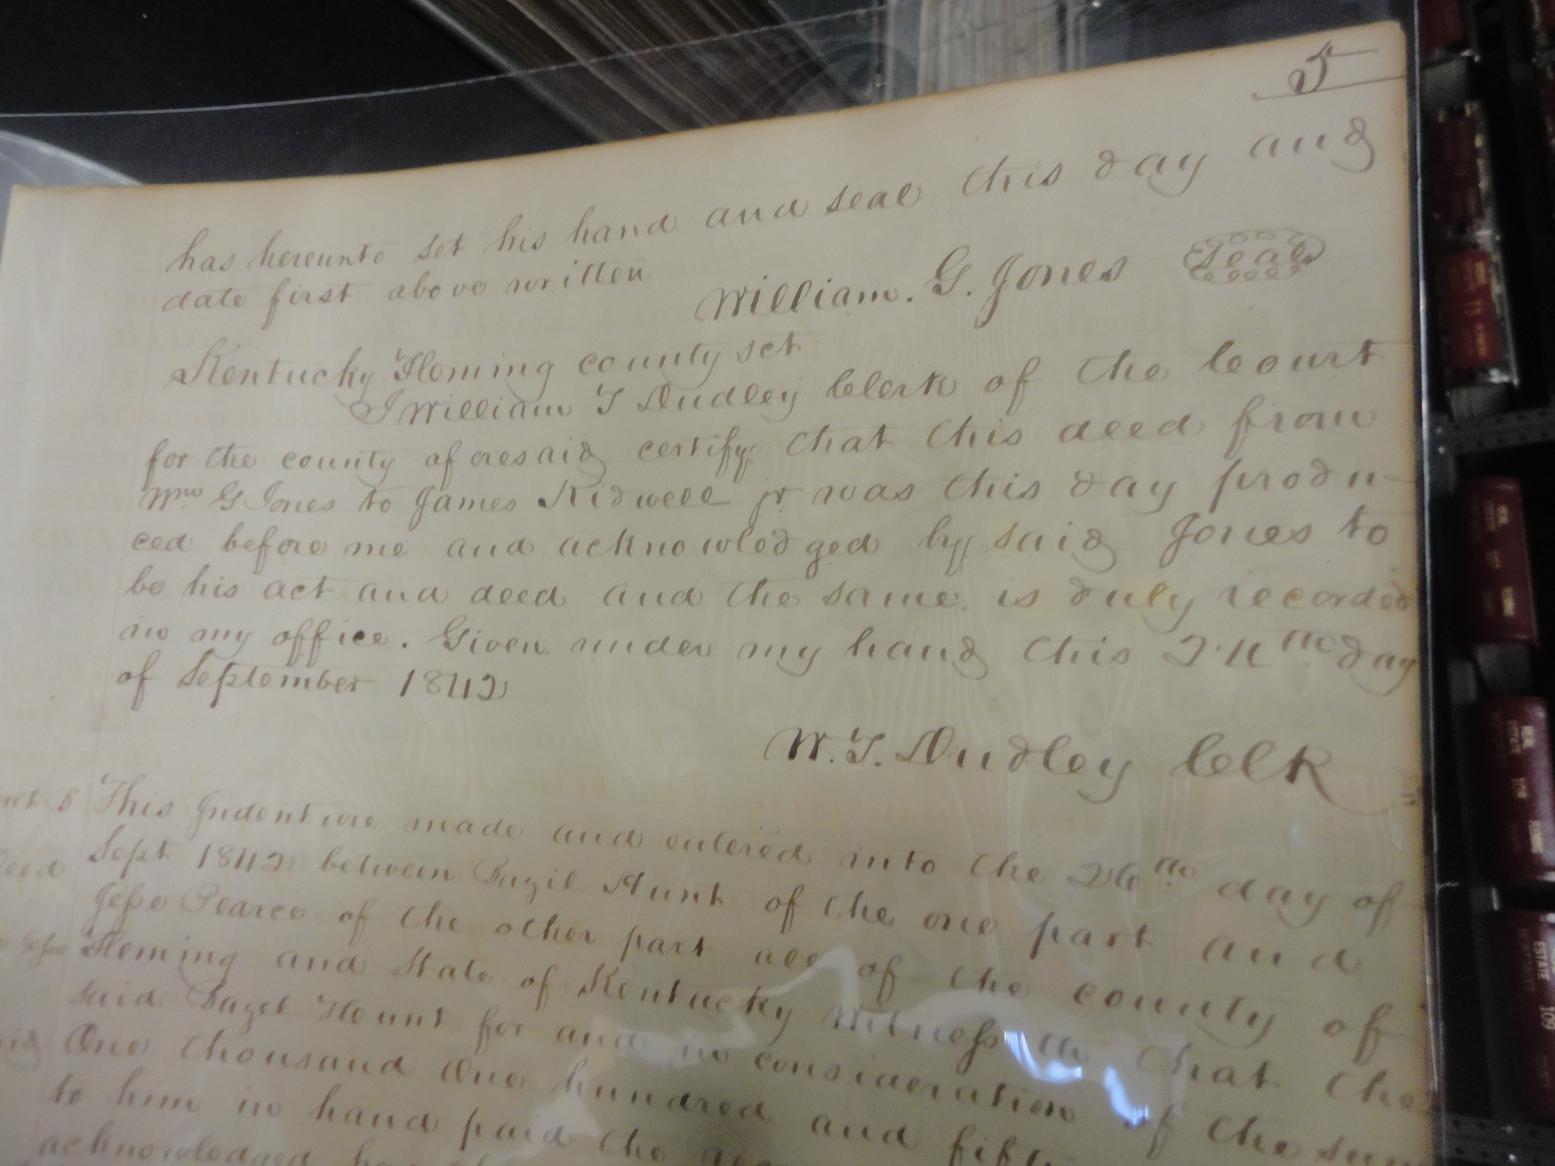 5
has hereunto set his hand and seal this day and
date first above written
William. G. Jones Seal
Kentucky Fleming county sct
I William T Dudley Clerk of the Court
for the county aforesaid certify that this deed from
Wm G Jones to James Kidwell jr was this day produ-
ced before me and acknowledged by said Jones to
be his act and deed and the same is duly recorded
in my office. Given under my hand this 24th day
of September 1842
W. T. Dudley Clk
This Indenture made and entered into the 26th day of
Sept 1842 between Bazil Hunt of the one part and
Deed
Jesse Pearce of the other part all of the county of
Fleming and State of Kentucky Witnesseth that the
said Bazel Hount for and in consideration of the sum
One thousand One hundred and fifty
to him in hand paid the
acknowledged